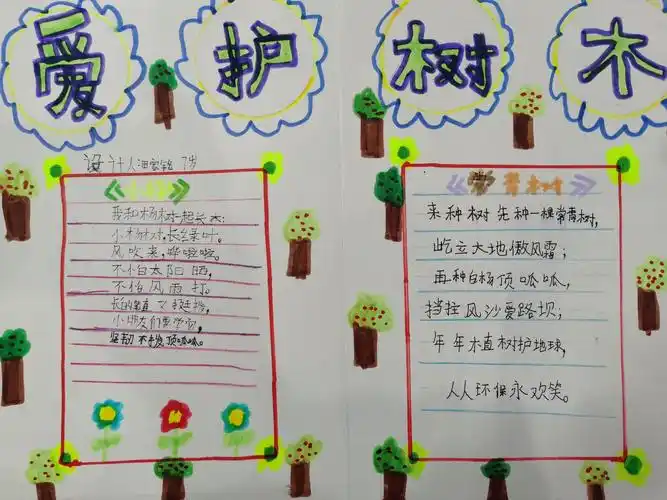 爱护树木
设计人 7岁
《小杨树》
我和杨树一起长大:
小杨树,长绿叶。
风吹来,哗啦啦。
不怕太阳晒,
不怕风雨打。
长的直又挺拔,
小朋友们要学它,
坚韧不拔顶呱呱。
《常青树》
来种树先种一棵常青树,
屹立大地傲风霜;
再种白杨顶呱呱,
挡拄风沙爱路坝;
年年木直树护地球,
人人环保永欢笑。